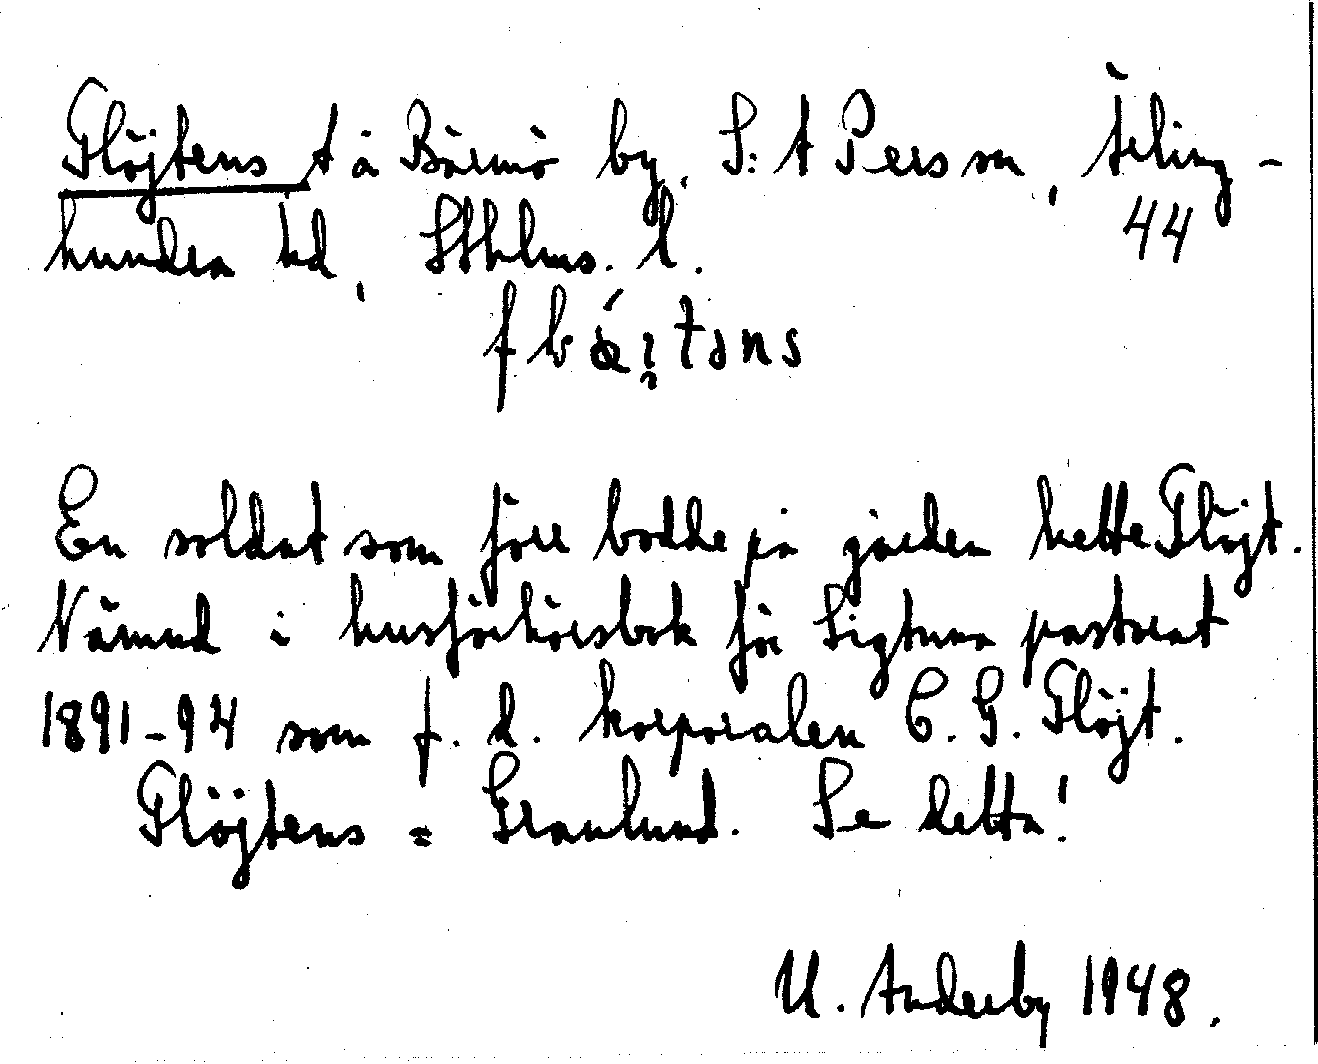 Flöjtens t å Bärmö by, S:t Persson, Ärling-
hundra hd, Sthlms. l. 44
En soldat som förr bodde på gården hette Flöjt.
Nämnd i husförhörsbok för Sigtuna pastorat
1891-94 som f. d. korporalen C. G. Flöjt.
Flöjtens = Granlund. Se detta!
U. Anderby 1948.